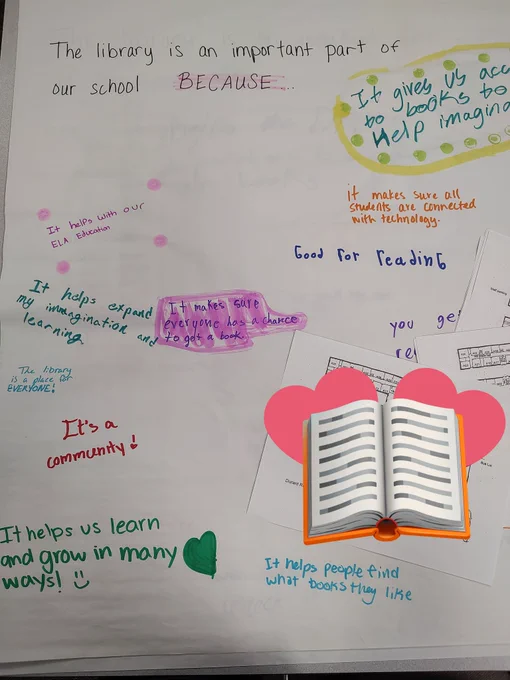 The library is an important part of
our school BECAUSE...
It gives us acc
to books to
Help imagina
it makes sure all
students are connected
with technology.
It helps with our
ELA Education
Good for reading
It helps expand
my immagination and
learning
It makes sure
everyone has a chance
to get a book.
you ge
re
The library
is a place for
EVERYONE!
It's a
community!
It helps us learn
and grow in many
ways!
It helps people find
what books they like